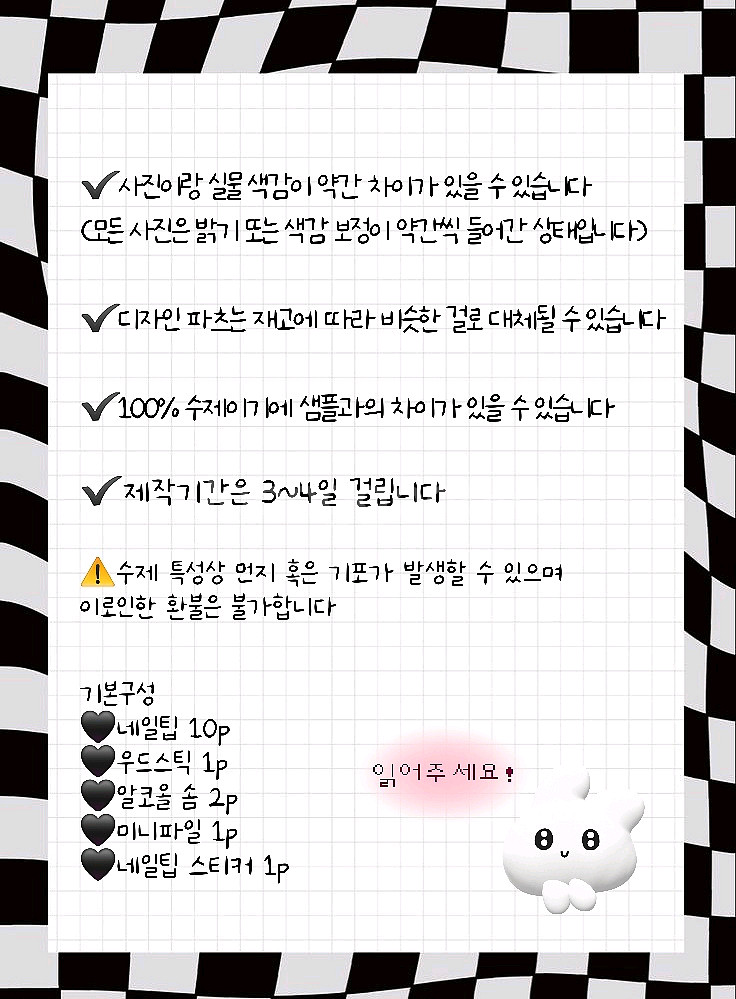 ✔사진이랑 실물 색감이 약간 차이가 있을 수 있습니다
(모든 사진은 밝기 또는 색감 보정이 약간씩 들어간 상태입니다)
✔디자인 파츠는 재고에 따라 비슷한 걸로 대체될 수 있습니다
✔100% 수제이기에 샘플과의 차이가 있을 수 있습니다
✔제작기간은 3~4일 걸립니다
⚠수제 특성상 먼지 혹은 기포가 발생할 수 있으며
이로인한 환불은 불가합니다
기본구성
🖤네일팁 10p
🖤우드스틱 1p
🖤알코올 솜 2p
🖤미니파일 1p
🖤네일팁 스티커 1p
읽어주세요!